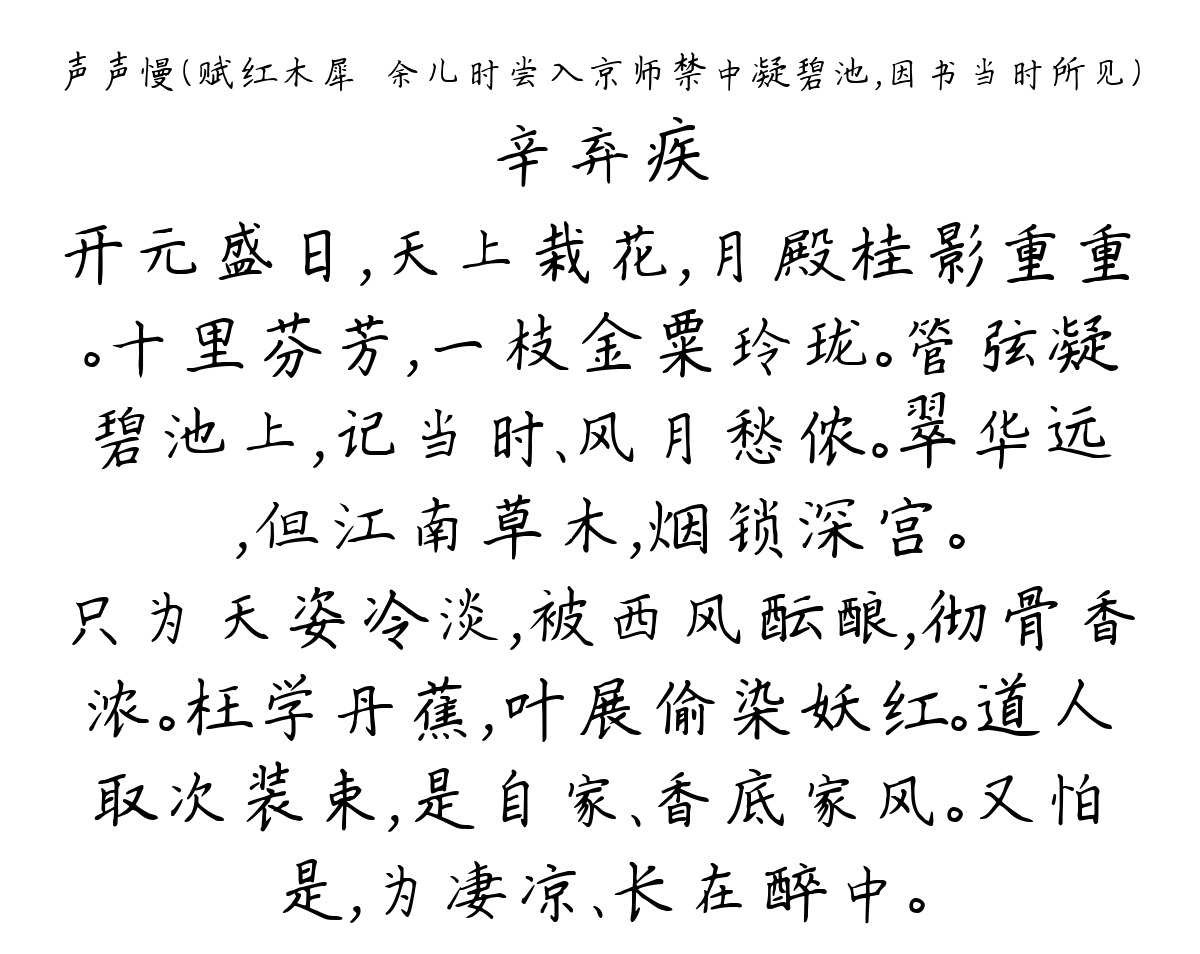 声声慢(赋红木犀 余儿时尝入京师禁中凝碧池,因书当时所见)
辛弃疾
开元盛日,天上栽花,月殿桂影重重
。十里芬芳,一枝金粟玲珑。管弦凝
碧池上,记当时、风月愁侬。翠华远
,但江南草木,烟锁深宫。
只为天姿冷淡,被西风酝酿,彻骨香
浓。枉学丹蕉,叶展偷染妖红。道人
取次装束,是自家、香底家风。又怕
是,为凄凉、长在醉中。